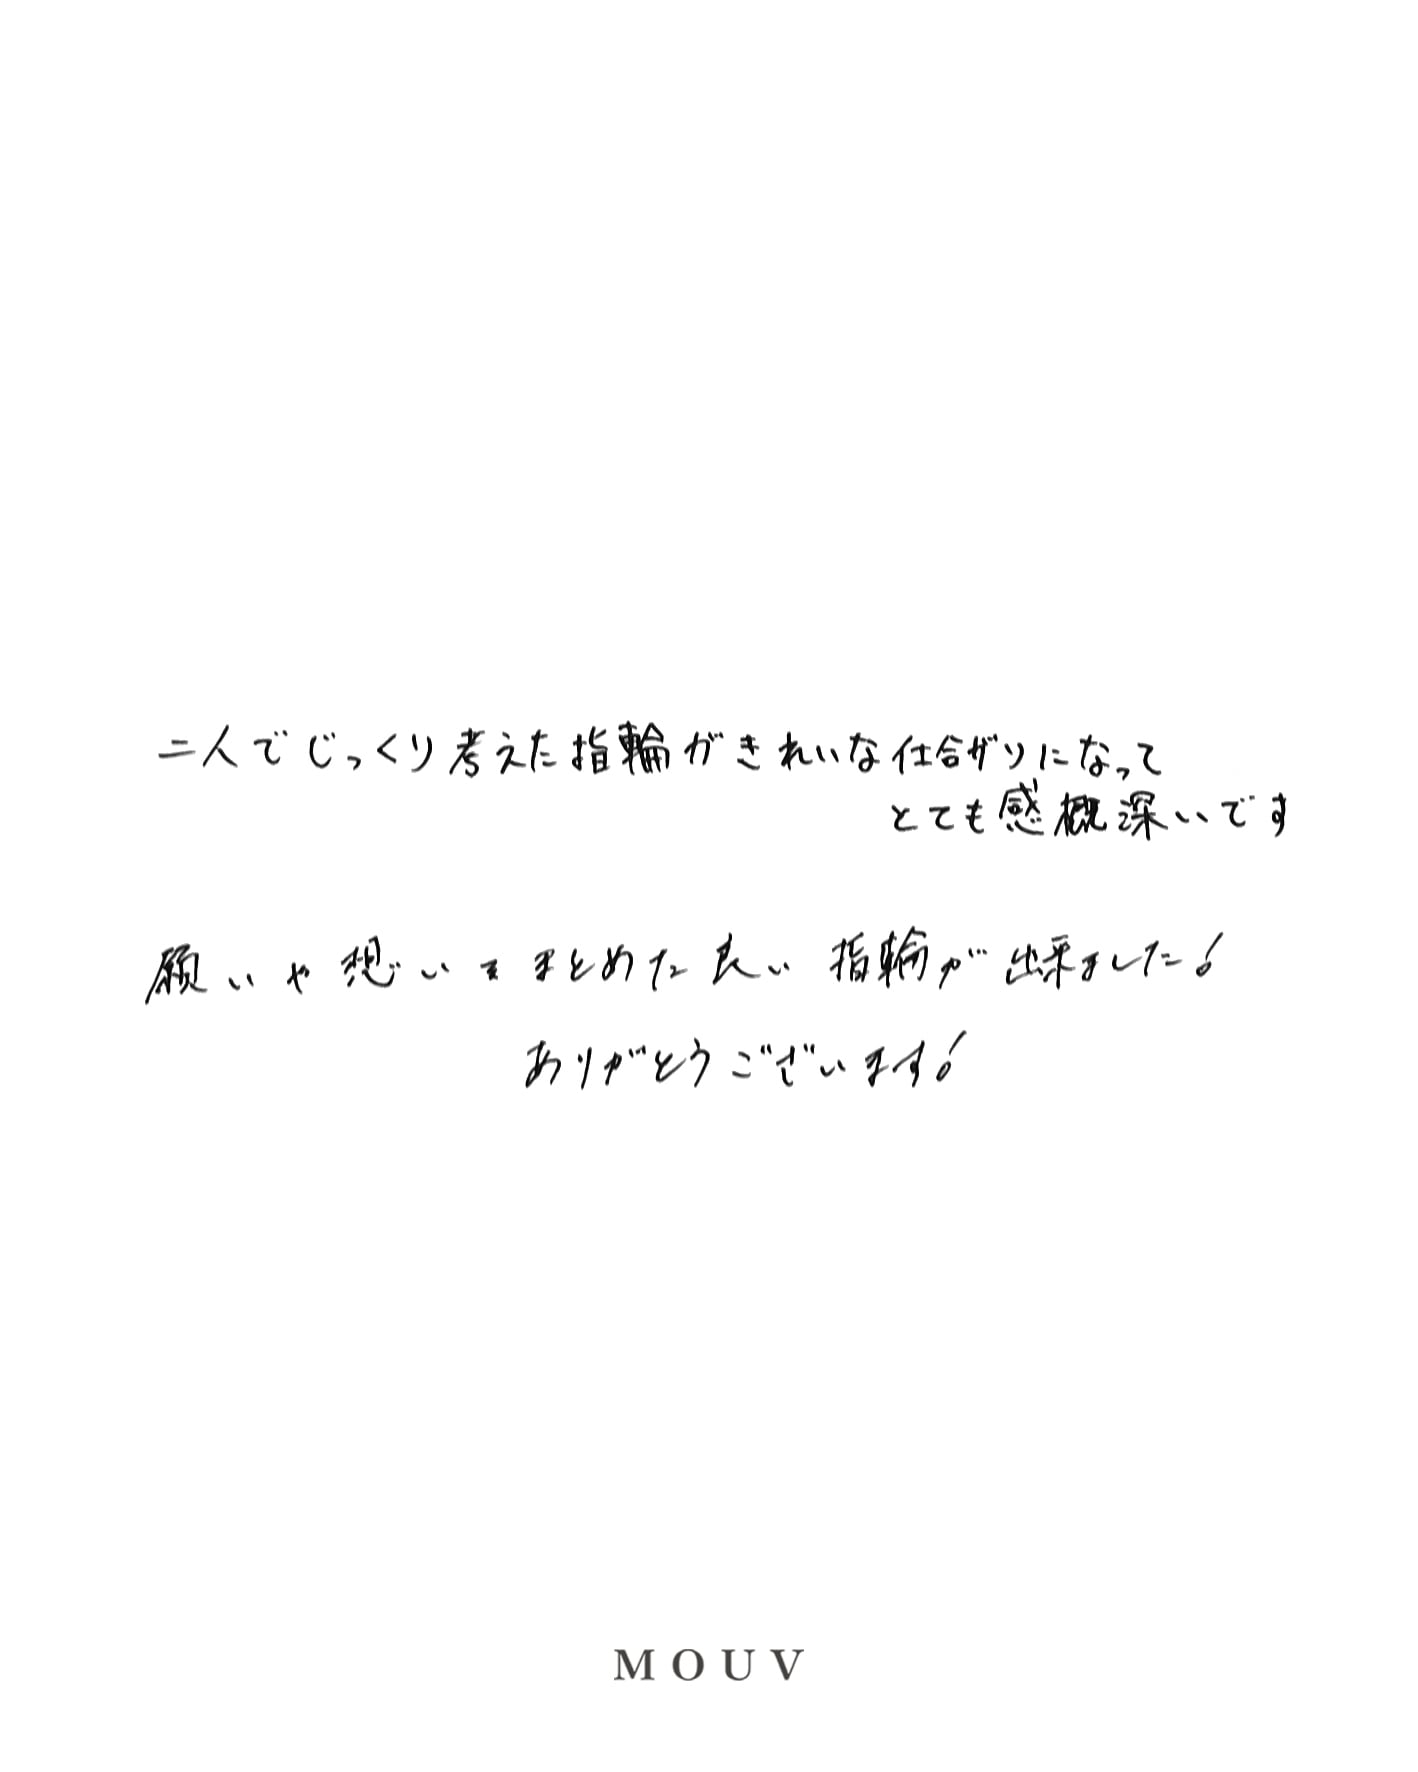 二人でじっくり考えた指輪がきれいな仕合ガリになって
とても感概深いです
願いや想いをまとめた良い指輪が出来ました!
ありがとうございます!
MOUV